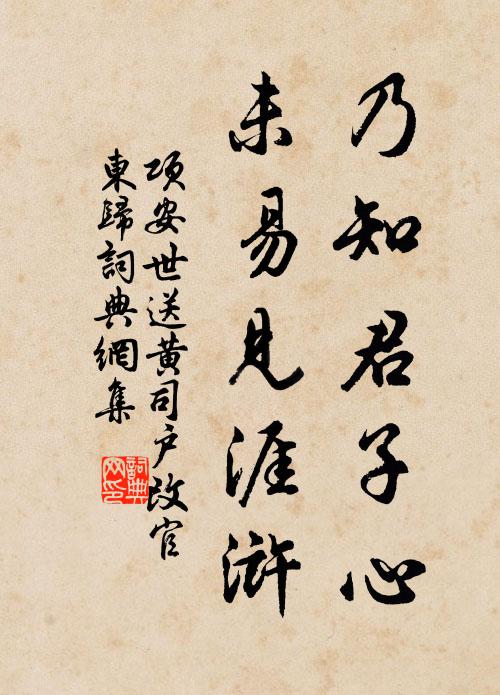 乃知君子心
未易見涯滸
項安世送黄司户改官
東歸詞典網集
詞典網印